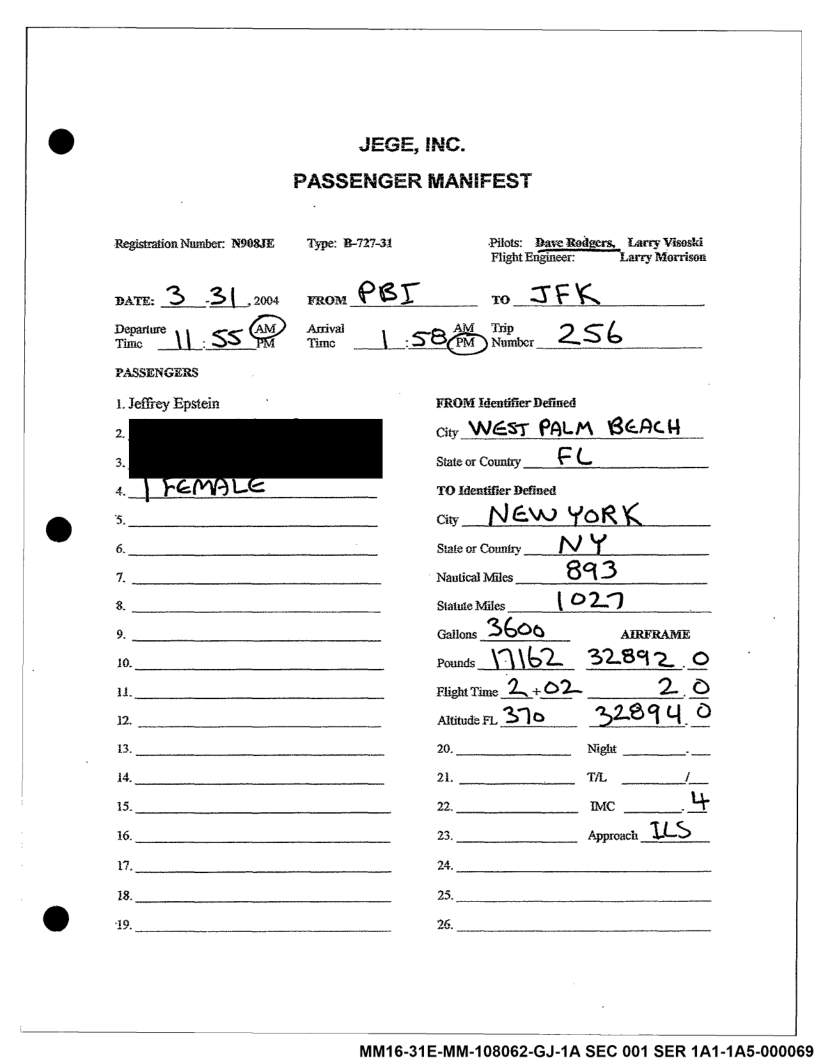 JEGE, INC.
PASSENGER MANIFEST
Registration Number: N908JE Type: B-727-31 Pilots: Dave Rodgers, Larry Visoski
Flight Engineer: Larry Morrison
DATE: 3 -31, 2004 FROM PBI TO JFK
Departure Time 11:55 AM PM Arrival Time 1:58 AM PM Trip Number 256
PASSENGERS
1. Jeffrey Epstein
2.
3.
4. 1 FEMALE
5.
6.
7.
8.
9.
10.
11.
12.
13.
14.
15.
16.
17.
18.
19.
FROM Identifier Defined
City WEST PALM BEACH
State or Country FL
TO Identifier Defined
City NEW YORK
State or Country NY
Nautical Miles 893
Statute Miles 1027
Gallons 3600 AIRFRAME
Pounds 17162 32892.0
Flight Time 2+02 2.0
Altitude FL 370 32894.0
20. Night .
21. T/L /
22. IMC .4
23. Approach ILS
24.
25.
26.
MM16-31E-MM-108062-GJ-1A SEC 001 SER 1A1-1A5-000069